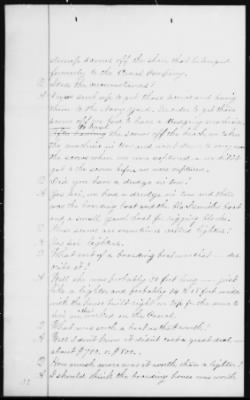 scows off the shore that belonged
formerly to the Canal Company.
Q State the circumstances?
A I was sent up to get those scows and bring
them to the Navy Yard. In order to get those
scows off we had to have a dredging machine
to tow the scows off the beach, we taken
the machine in tow and went down to carry away
the scows when we were captured - we didn't
get to the scows before we were captured.
Q Did you have a dredge in tow?
A Yes sir, we had a dredge in tow and there
was the boarding boat and the blacksmith boat
and a small yawl boat for
Q Those scows are sometimes called lighters?
A Yes sir lighters.
Q What sort of a boarding boat was that
A Well she was probably 50 feet long - just
like a lighter and probably 14 to 15 feet wide
with the house built right on top for the men to
live in
Q What was such a boat as that worth?
A Well I don't know it would cost a great deal -
about $700. or $800.
Q How much more was it worth than a lighter?
A I should think the boarding house was worth